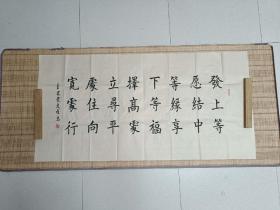 發上等
愿結中
等緣享
下等福
擇高處
立尋平
處住向
寬處行